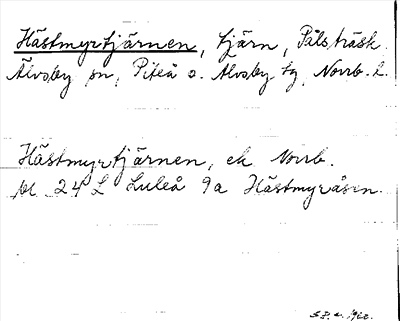 Hästmyrtjärnen, tjärn, Pålsträsk.
Älvsby sn, Piteå o. Älvsby tg, Norrb. l.
Hästmyrtjärnen, ek Norrb.
bl 24 L Luleå 9a Hästmyråsen.